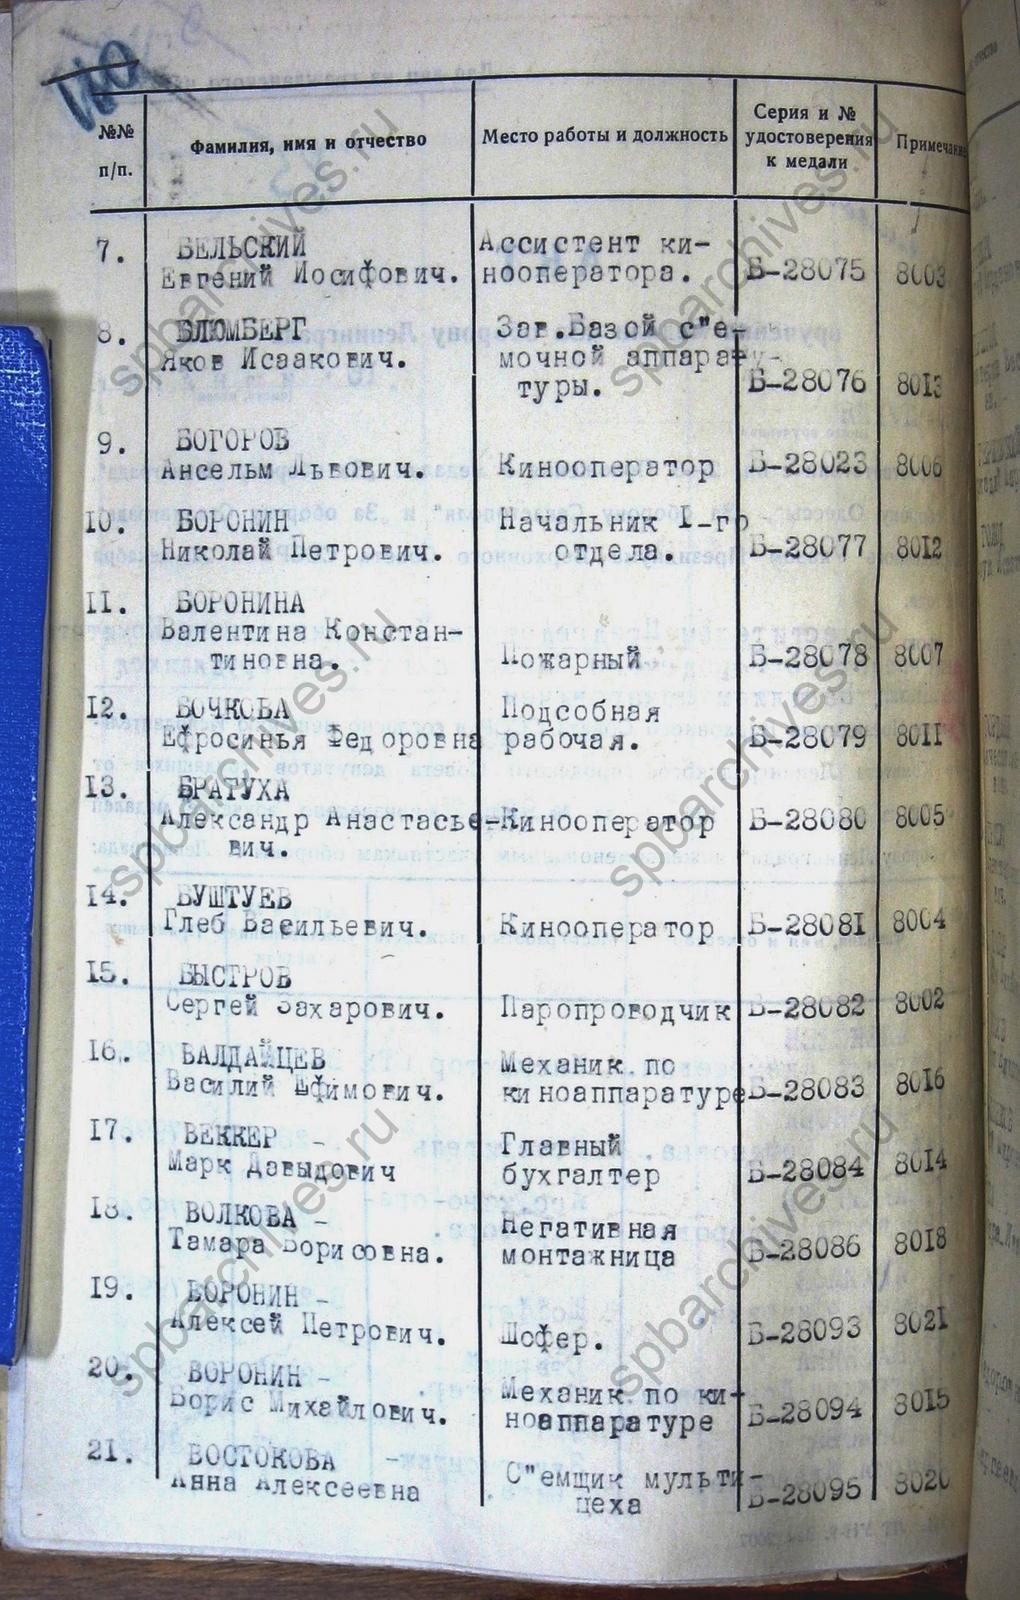 №№ п/п.
Фамилия, имя и отчество
Место работы и должность
Серия и № удостоверения к медали
Примечание
7. БЕЛЬСКИЙ Ассистент ки-
Евгений Иосифович. нооператора. Б-28075 8003
8. БЛЮМБЕРГ Зав.Базой с"е-
Яков Исаакович. мочной аппарату-
туры. Б-28076 8013
9. БОГОРОВ
Ансельм Львович. Кинооператор Б-28023 8006
10. БОРОНИН Начальник I-го
Николай Петрович. отдела. Б-28077 8012
11. БОРОНИНА
Валентина Констан-
тиновна. Пожарный Б-28078 8007
12. БОЧКОВА Подсобная
Ефросинья Федоровна рабочая. Б-28079 8011
13. БРАТУХА
Александр Анастасье- Кинооператор Б-28080 8005
вич.
14. БУШТУЕВ
Глеб Васильевич. Кинооператор Б-28081 8004
15. БЫСТРОВ
Сергей Захарович. Паропроводчик Б-28082 8002
16. ВАЛДАЙЦЕВ Механик по
Василий Ефимович. киноаппаратуре Б-28083 8016
17. ВЕККЕР - Главный
Марк Давыдович бухгалтер Б-28084 8014
18. ВОЛКОВА - Негативная
Тамара Борисовна. монтажница Б-28086 8018
19. ВОРОНИН -
Алексей Петрович. Шофер. Б-28093 8021
20. ВОРОНИН - Механик по ки-
Борис Михайлович. ноаппаратуре Б-28094 8015
21. ВОСТОКОВА - С"емщик мульти-
Анна Алексеевна цеха Б-28095 8020
spbarchives.ru
spbarchives.ru
spbarchives.ru
spbarchives.ru
spbarchives.ru
spbarchives.ru